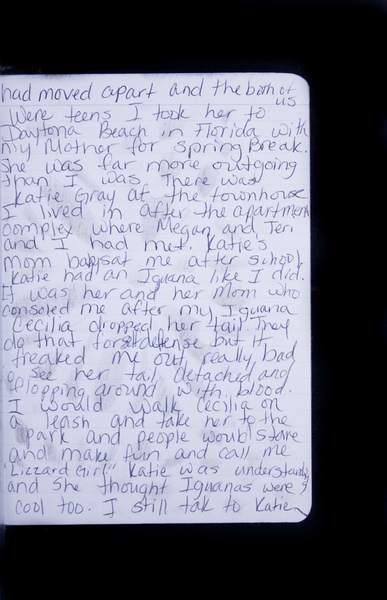 had moved apart and the both of
us
were teens I took her to
Daytona Beach in Florida with
my Mother for Spring Break.
She was far more outgoing
than I was. There was
Katie Gray at the townhouse
I lived in after the apartment
complex where Megan and Teri
and I had met. Katie's
mom babysat me after school.
Katie had an Iguana like I did.
It was her and her Mom who
consoled me after my Iguana
Cecilia dropped her tail. They
do that for self defense but it
freaked me out really bad
to see her tail detached and
plopping around with blood.
I would walk Cecilia on
a leash and take her to the
park and people would stare
and make fun and call me
"Lizzard Girl" Katie was understanding
and she thought Iguanas were
cool too. I still talk to Katie